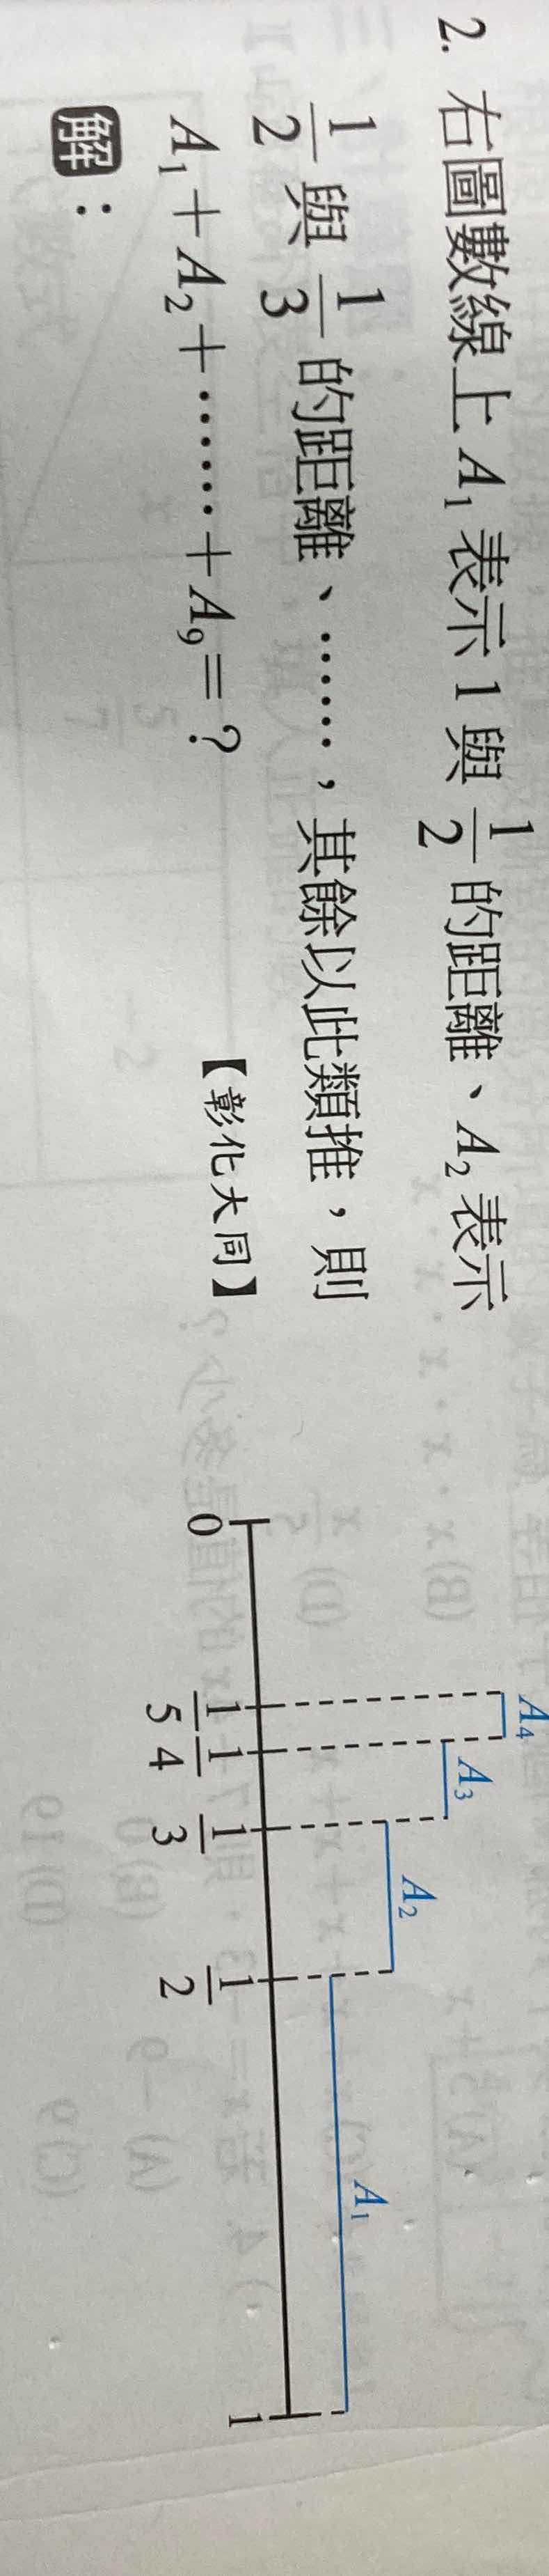 2. 右圖數線上 A₁ 表示 1 與 1/2 的距離、A₂ 表示
1/2 與 1/3 的距離、……，其餘以此類推，則
A₁＋A₂＋……＋A₉＝？ 【彰化大同】
解：
A₄
A₃
A₂
A₁
0 1/5 1/4 1/3 1/2 1